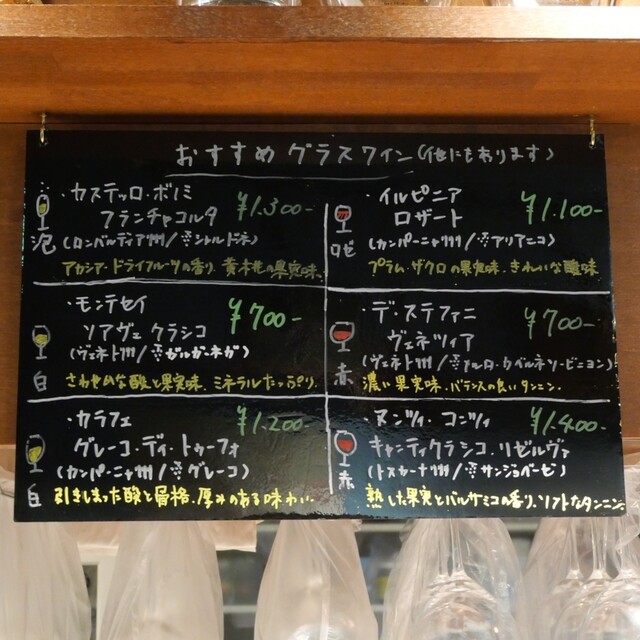 おすすめ グラスワイン(他にもあります)
泡
・カステッロ・ボノミ
フランチャコルタ
¥1.300-
(ロンバルディア州/シャルドネ)
アカシア・ドライフルーツの香り、黄桃の果実味、
ロゼ
・イルピニア
ロザート
¥1.100-
(カンパーニャ州/アリアニコ)
プラム、ザクロの果実味、きれいな酸味
白
・モンテセイ
ソアヴェ クラシコ
¥700-
(ヴェネト州/ガルガーネガ)
さわやかな酸と果実味、ミネラルたっぷり、
赤
・デ・ステファニ
ヴェネツィア
¥700-
(ヴェネト州/メルロ・カベルネソービニヨン)
濃い果実味、バランスの良いタンニン、
白
・カラフェ
グレーコ・ディ・トゥーフォ
¥1.200-
(カンパーニャ州/グレーコ)
引きしまった酸と骨格、厚みのある味わい、
赤
・ヌンツィ・コンツィ
キャンティクラシコ・リゼルヴァ
¥1.400-
(トスカーナ州/サンジョベーゼ)
熟した果実とバルサミコの香り、ソフトなタンニン